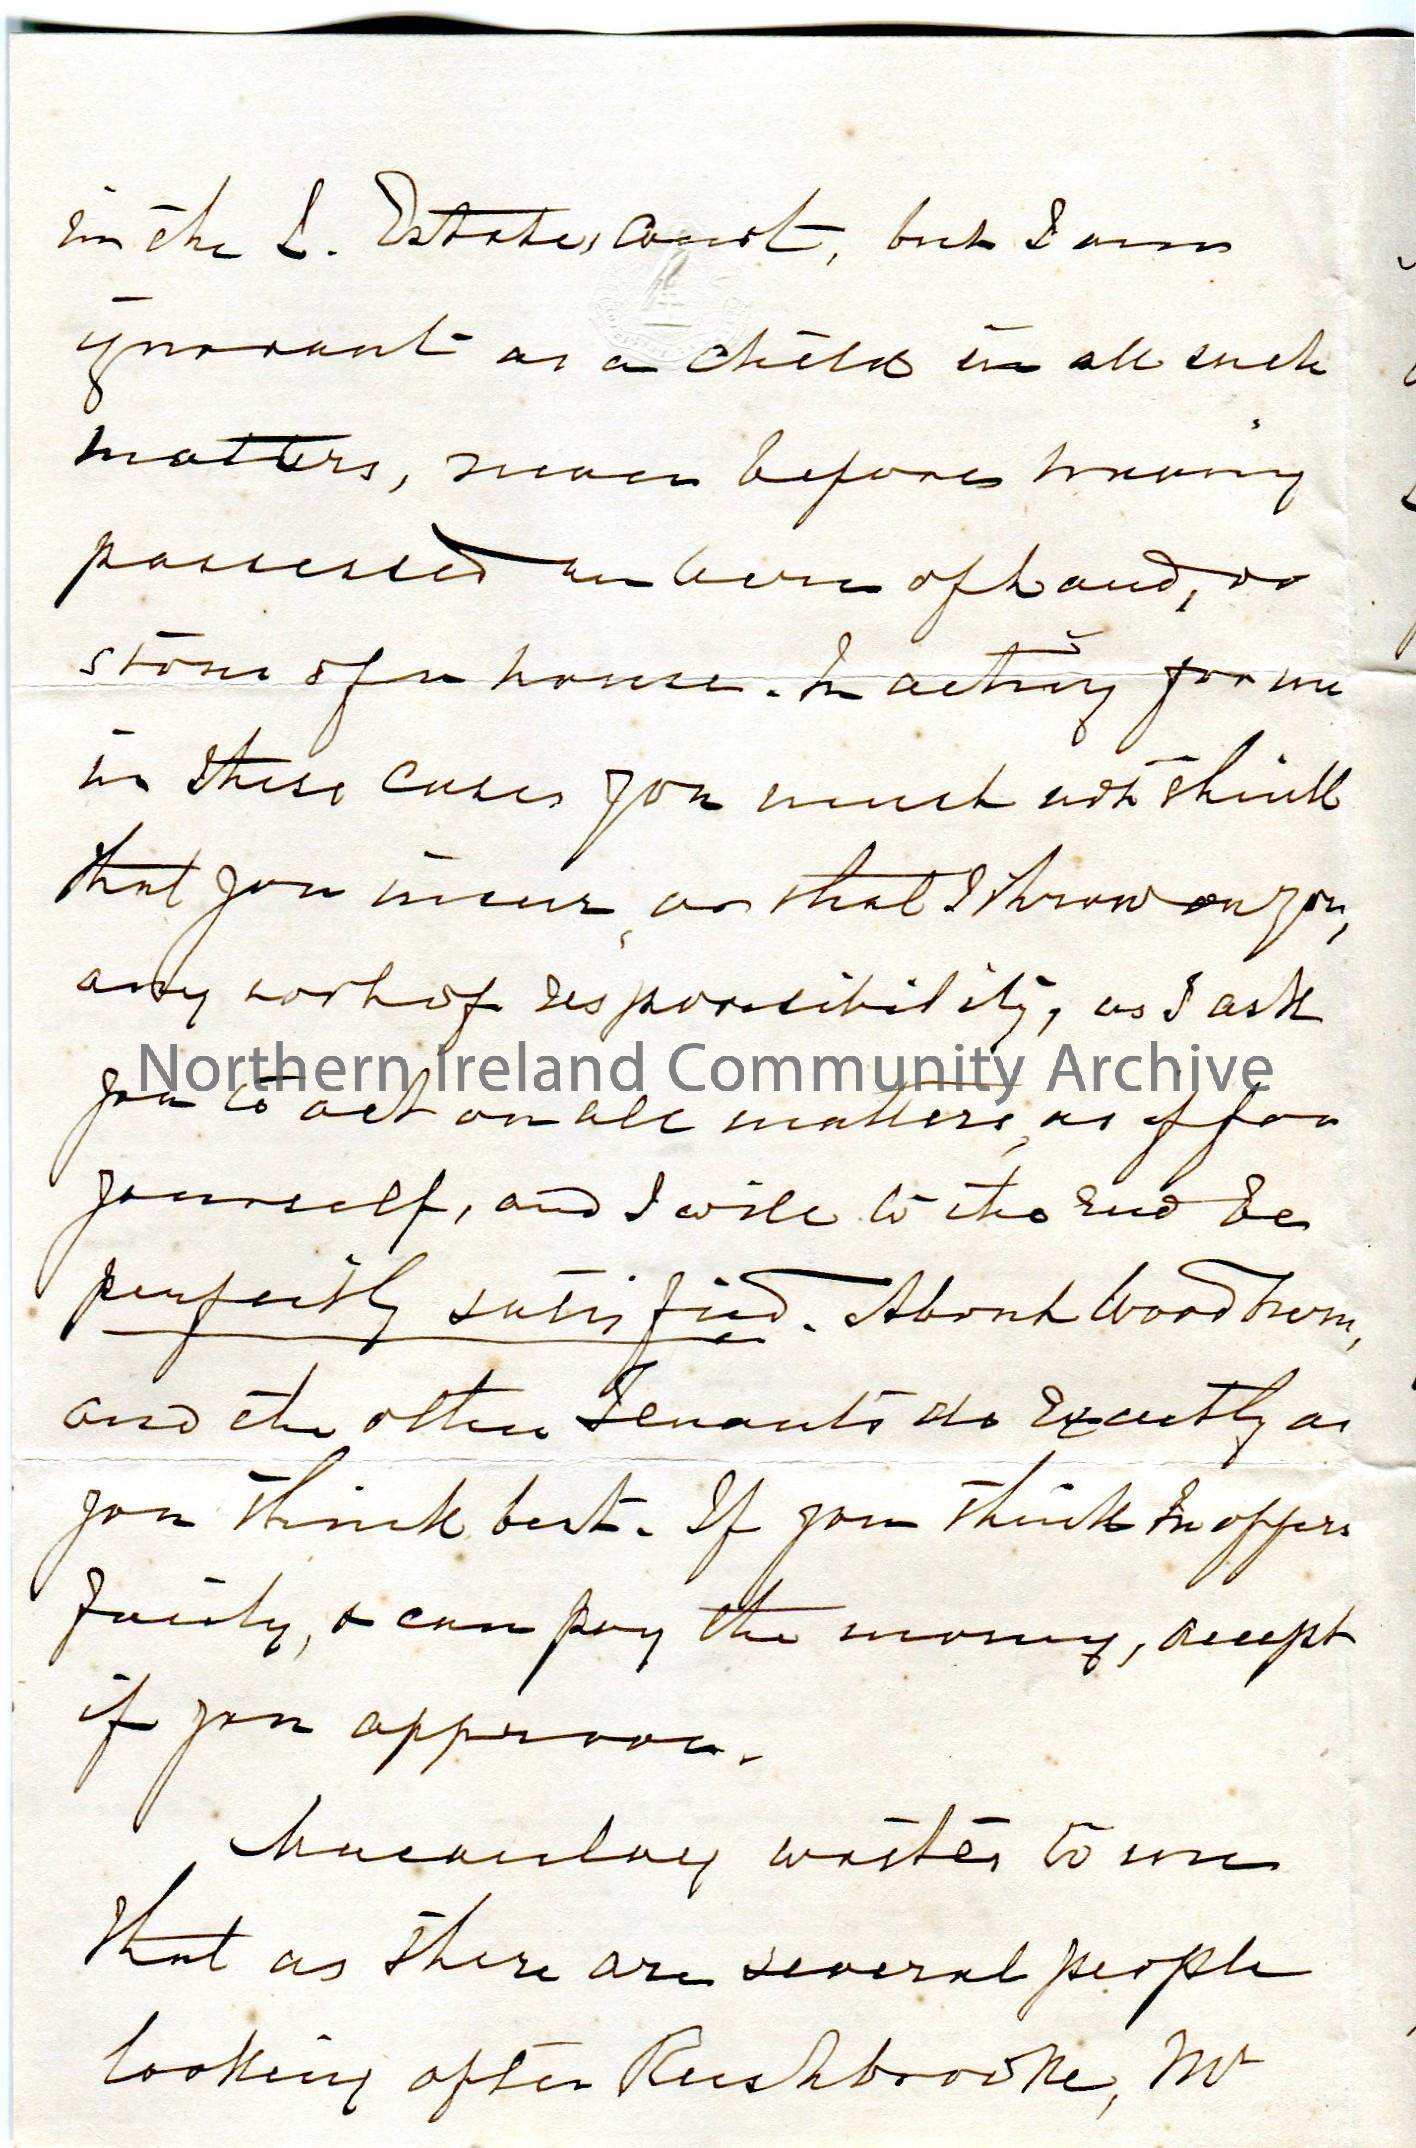 in the L. Estates Court, but I am
ignorant as a child in all such
matters, never before having
possessed an acre of land, or
stone of a house. In acting for me
in these cases you must not think
that you incur, or that I throw on you,
any sort of responsibility, as I ask
Northern Ireland Community Archive
you to act on all matters, as if for
yourself, and I will to the End be
perfectly satisfied. About Woodburn,
and the other Tenants do Exactly as
you think best. If you think In offers
fairly, & can pay the money, accept
if you approve.
Macaulay writes to me
that as there are several people
looking after Rushbrooke, Mr